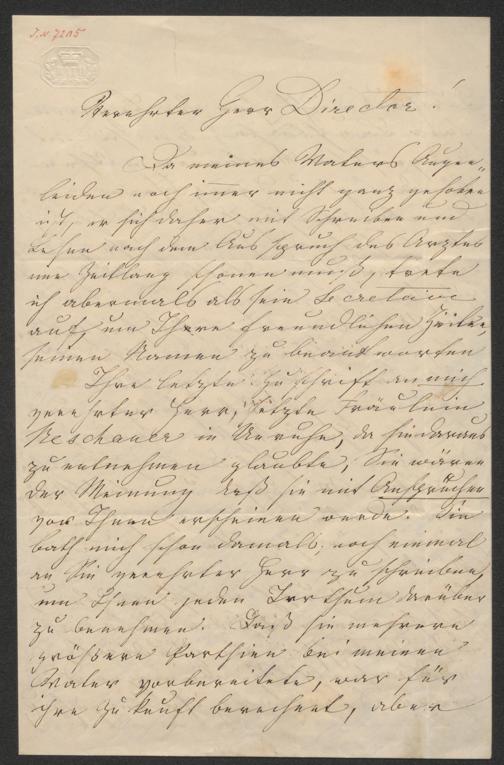 J.N. 7285
Verehrter Herr Director!
Da meines Vaters Augen„
leiden noch immer nicht ganz gehoben
ist, er sich daher mit Schreiben und
Lesen nach dem Ausspruch des Arztes
eine Zeitlang schonen muß, trete
ich abermals als sein Secretaire
auf, um Ihre freundlichen Zeilen,
seinen Namen zu beantworten
Ihre letzte Zuschrift an mich
verehrter Herr, setzte Fräulein
Neschauer in Unruhe, da sie daraus
zu entnehmen glaubte, Sie wären
der Meinung daß sie mit Ansprüchen
vor Ihnen erscheinen werde. Sie
bath mich schon damals, noch einmal
an Sie verehrter Herr zu schreiben,
um Ihnen jeden Irrthum darüber
zu benehmen. Daß sie mehrere
größere Parthien bei meinem
Vater vorbereitete, war für
ihre Zukunft berechnet, aber